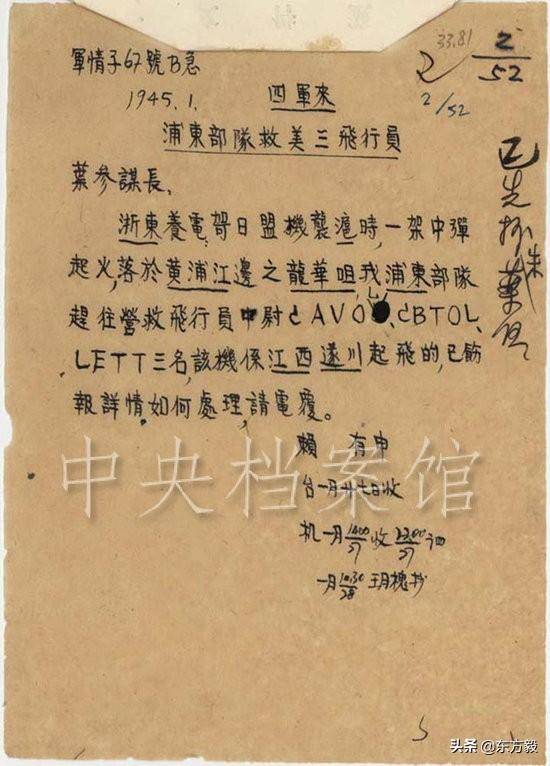 33.81
2
2/52
2/52
軍情子67號B急
1945.1. 四軍來
浦東部隊救美三飛行員
葉參謀長、
浙東養電哿日盟機襲滬時,一架中彈
起火,落於黄浦江邊之龍華咀,我浦東部隊
趕往營救飛行員中尉CAVO、CBTOL、
LETT三名,該機係江西遂川起飛的,已飭
報詳情,如何處理,請電覆。
賴 有申
台一月廿七日收
机一月1400/27收2200/27
一月10.30/28 玥槐抄
已先抄
中央档案馆
头条 @东方毅